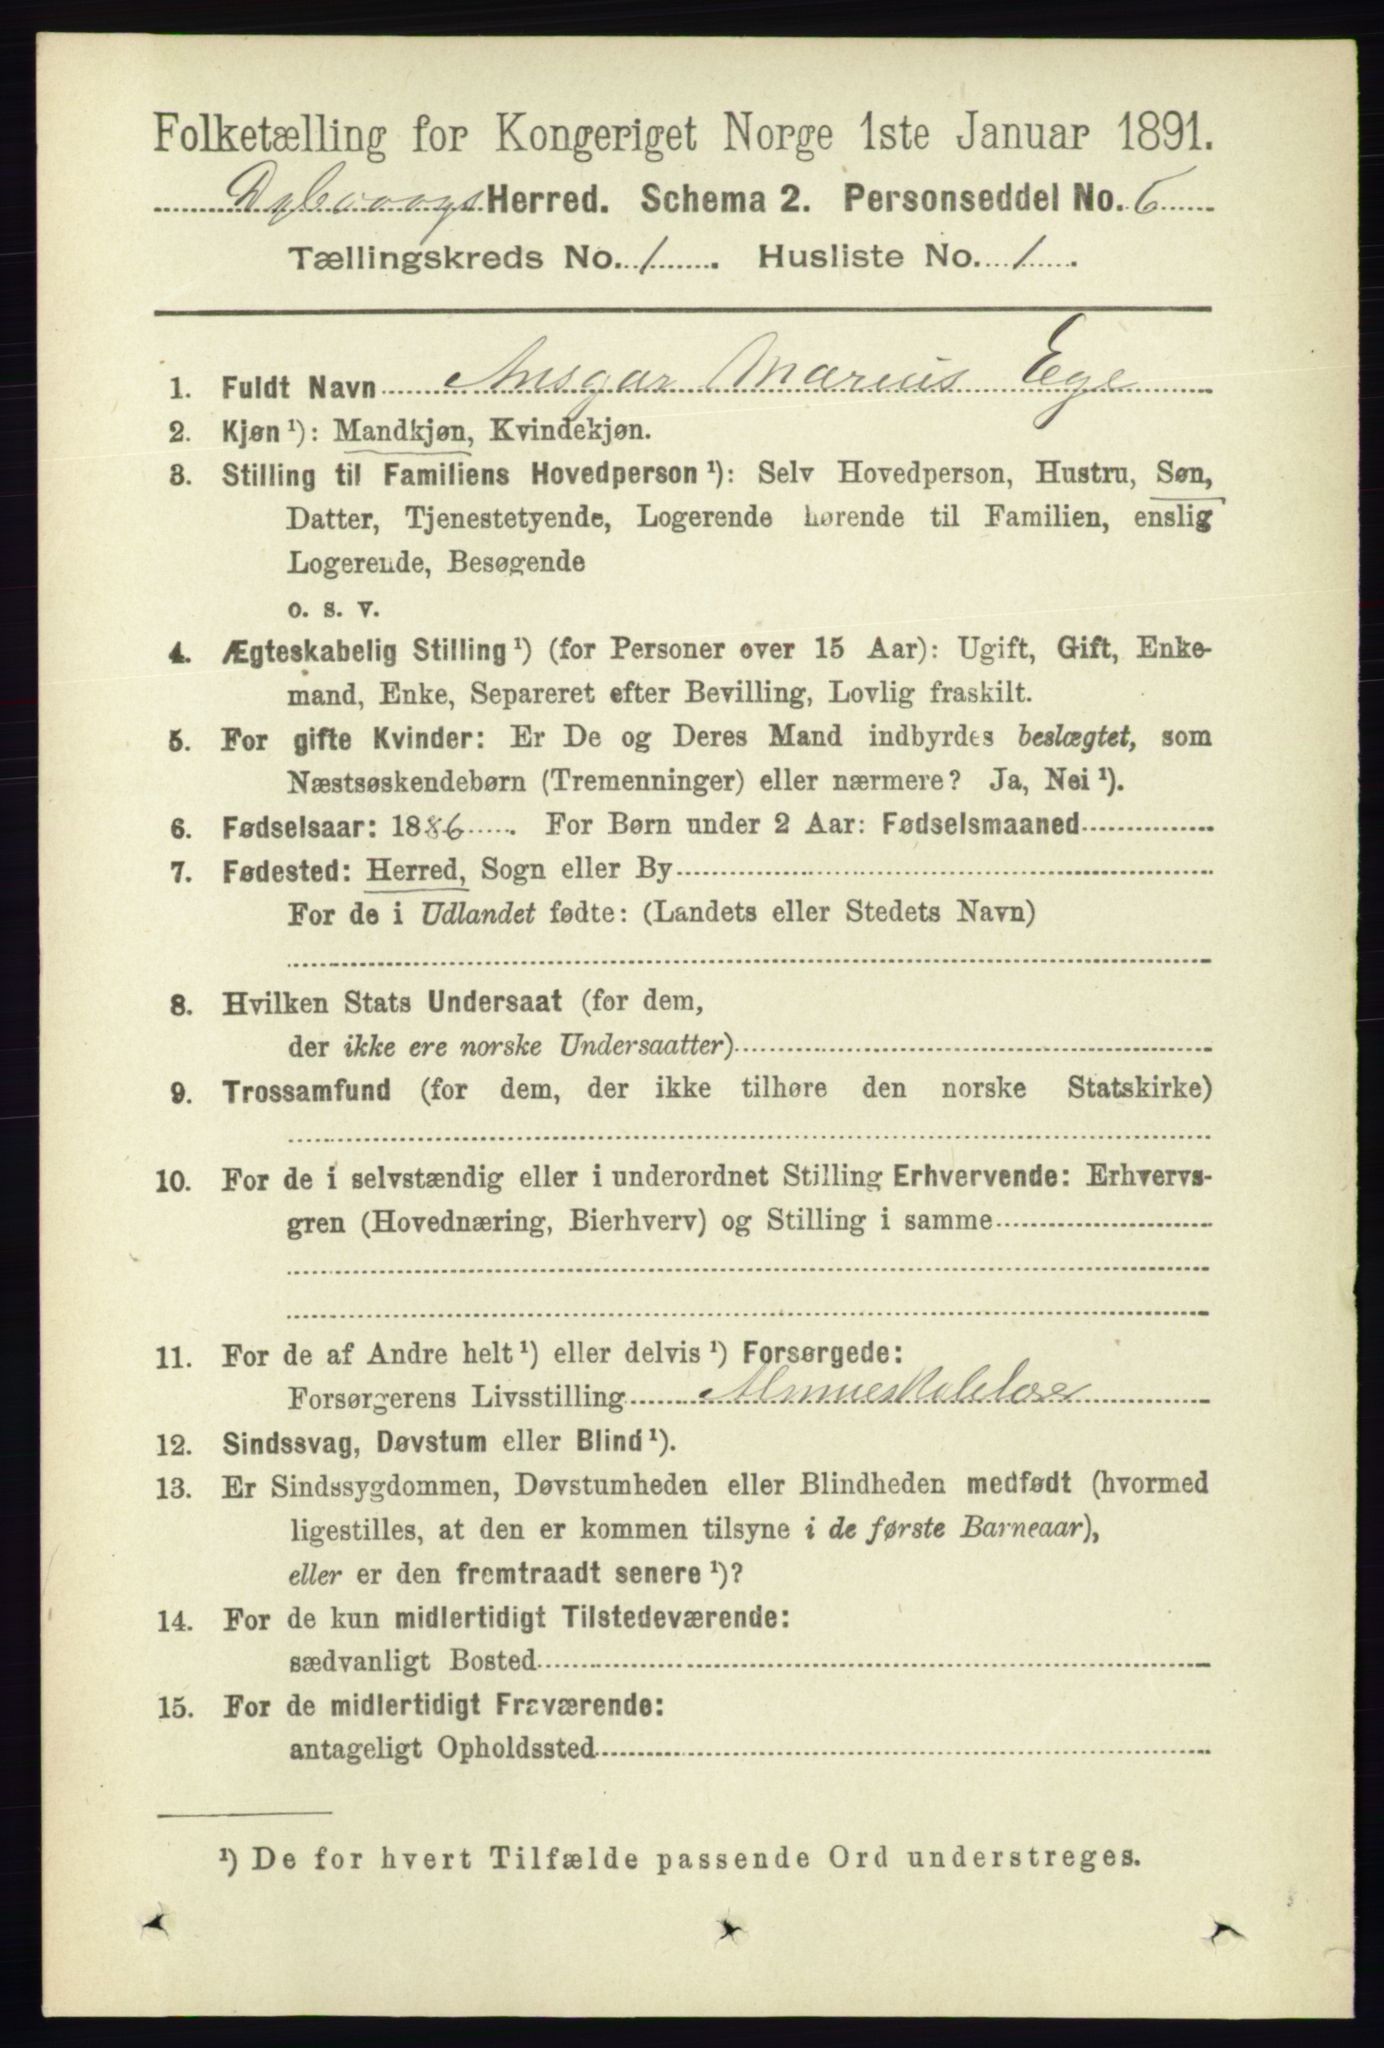 Folketælling for Kongeriget Norge 1ste Januar 1891.
Dybvaags Herred. Schema 2. Personseddel No. 6
Tællingskreds No. 1. Husliste No. 1.
1. Fuldt Navn Ansgar Marius Ege
2. Kjøn ¹): Mandkjøn, Kvindekjøn.
3. Stilling til Familiens Hovedperson ¹): Selv Hovedperson, Hustru, Søn,
Datter, Tjenestetyende, Logerende hørende til Familien, enslig
Logerende, Besøgende
o. s. v.
4. Ægteskabelig Stilling ¹) (for Personer over 15 Aar): Ugift, Gift, Enke-
mand, Enke, Separeret efter Bevilling, Lovlig fraskilt.
5. For gifte Kvinder: Er De og Deres Mand indbyrdes beslægtet, som
Næstsøskendebørn (Tremenninger) eller nærmere? Ja, Nei ¹).
6. Fødselsaar: 1886. For Børn under 2 Aar: Fødselsmaaned
7. Fødested: Herred, Sogn eller By
For de i Udlandet fødte: (Landets eller Stedets Navn)
8. Hvilken Stats Undersaat (for dem,
der ikke ere norske Undersaatter)
9. Trossamfund (for dem, der ikke tilhøre den norske Statskirke)
10. For de i selvstændig eller i underordnet Stilling Erhvervende: Erhvervs-
gren (Hovednæring, Bierhverv) og Stilling i samme
11. For de af Andre helt ¹) eller delvis ¹) Forsørgede:
Forsørgerens Livsstilling Almueskolelær
12. Sindssvag, Døvstum eller Blind ¹).
13. Er Sindssygdommen, Døvstumheden eller Blindheden medfødt (hvormed
ligestilles, at den er kommen tilsyne i de første Barneaar),
eller er den fremtraadt senere ¹)?
14. For de kun midlertidigt Tilstedeværende:
sædvanligt Bosted
15. For de midlertidigt Fraværende:
antageligt Opholdssted
¹) De for hvert Tilfælde passende Ord understreges.